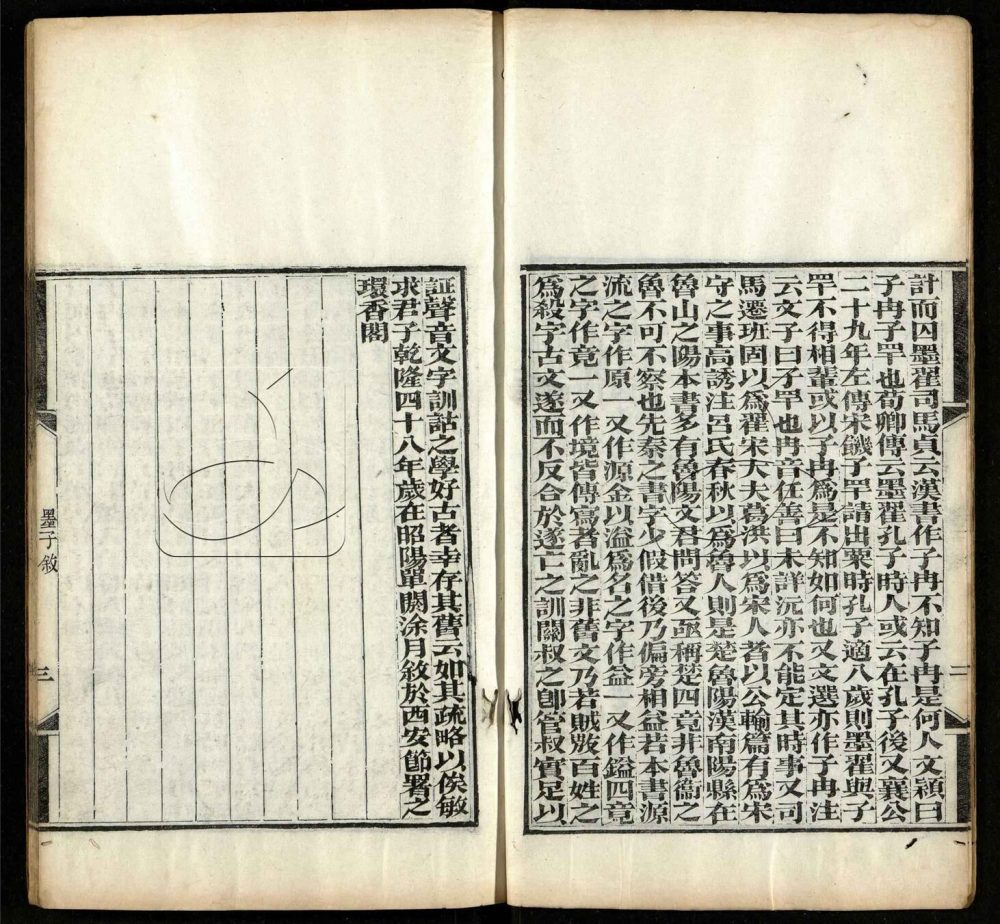 計而囚墨翟司馬貞云漢書作子冉不知子冉是何人文穎曰
子冉子罕也荀卿傳云墨翟孔子時人或云在孔子後又襄公
二十九年左傳宋饑子罕請出粟時孔子適八歲則墨翟與子
罕不得相輩或以子冉爲是不知如何也又文選亦作子冉注
云文子曰子罕也冉音任善曰未詳沉亦不能定其時事又司
馬遷班固以爲翟宋大夫葛洪以爲宋人者以公輸篇有爲宋
守之事高誘注呂氏春秋以爲魯人則是楚魯陽漢南陽縣在
魯山之陽本書多有魯陽文君問答又亟稱楚四竟非魯衞之
魯不可不察也先秦之書字少假借後乃偏旁相益若本書源
流之字作原一又作源金以溢爲名之字作益一又作鎰四竟
之字作竟一又作境皆傳寫者亂之非舊文乃若賊㪇百姓之
爲殺字古文遂而不反合於遂亡之訓關叔之卽管叔實足以
二
証聲音文字訓詁之學好古者幸存其舊云如其疏略以俟敏
求君子乾隆四十八年歲在昭陽單閼涂月敘於西安節署之
環香閣
墨子敘
三